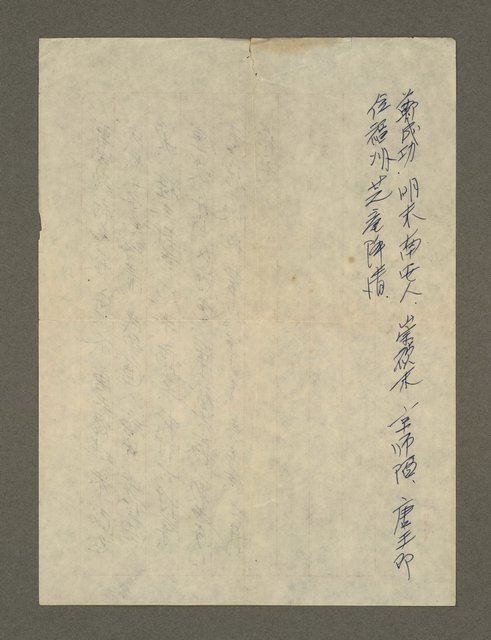 鄭成功．明末南安人．崇禎末京師陷、唐王即
位福州芝龍降清．